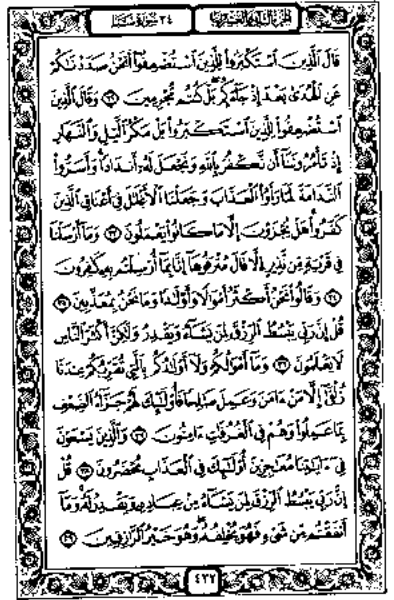 الجزء الثاني والعشرون ٣٤ سورة سبإ
قَالَ الَّذِينَ اسْتَكْبَرُوا لِلَّذِينَ اسْتُضْعِفُوا أَنَحْنُ صَدَدْنَاكُمْ
عَنِ الْهُدَىٰ بَعْدَ إِذْ جَاءَكُمْ بَلْ كُنْتُمْ مُجْرِمِينَ ٣٢ وَقَالَ الَّذِينَ
اسْتُضْعِفُوا لِلَّذِينَ اسْتَكْبَرُوا بَلْ مَكْرُ اللَّيْلِ وَالنَّهَارِ
إِذْ تَأْمُرُونَنَا أَنْ نَكْفُرَ بِاللَّهِ وَنَجْعَلَ لَهُ أَنْدَادًا وَأَسَرُّوا
النَّدَامَةَ لَمَّا رَأَوُا الْعَذَابَ وَجَعَلْنَا الْأَغْلَالَ فِي أَعْنَاقِ الَّذِينَ
كَفَرُوا هَلْ يُجْزَوْنَ إِلَّا مَا كَانُوا يَعْمَلُونَ ٣٣ وَمَا أَرْسَلْنَا
فِي قَرْيَةٍ مِنْ نَذِيرٍ إِلَّا قَالَ مُتْرَفُوهَا إِنَّا بِمَا أُرْسِلْتُمْ بِهِ كَافِرُونَ
٣٤ وَقَالُوا نَحْنُ أَكْثَرُ أَمْوَالًا وَأَوْلَادًا وَمَا نَحْنُ بِمُعَذَّبِينَ ٣٥
قُلْ إِنَّ رَبِّي يَبْسُطُ الرِّزْقَ لِمَنْ يَشَاءُ وَيَقْدِرُ وَلَٰكِنَّ أَكْثَرَ النَّاسِ
لَا يَعْلَمُونَ ٣٦ وَمَا أَمْوَالُكُمْ وَلَا أَوْلَادُكُمْ بِالَّتِي تُقَرِّبُكُمْ عِنْدَنَا
زُلْفَىٰ إِلَّا مَنْ آمَنَ وَعَمِلَ صَالِحًا فَأُولَٰئِكَ لَهُمْ جَزَاءُ الضِّعْفِ
بِمَا عَمِلُوا وَهُمْ فِي الْغُرُفَاتِ آمِنُونَ ٣٧ وَالَّذِينَ يَسْعَوْنَ
فِي آيَاتِنَا مُعَاجِزِينَ أُولَٰئِكَ فِي الْعَذَابِ مُحْضَرُونَ ٣٨ قُلْ
إِنَّ رَبِّي يَبْسُطُ الرِّزْقَ لِمَنْ يَشَاءُ مِنْ عِبَادِهِ وَيَقْدِرُ لَهُ وَمَا
أَنْفَقْتُمْ مِنْ شَيْءٍ فَهُوَ يُخْلِفُهُ وَهُوَ خَيْرُ الرَّازِقِينَ ٣٩
٤٣٢